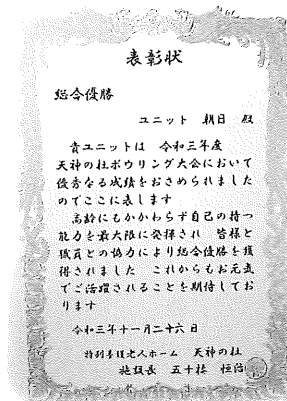 表彰状
総合優勝
ユニット 朝日 殿
貴ユニットは 令和三年度
天神の杜ボウリング大会において
優秀なる成績をおさめられました
のでここに表します
高齢にもかかわらず自己の持つ
能力を最大限に発揮され 皆様と
職員との協力により総合優勝を獲
得されました これからもお元気
でご活躍されることを期待してお
ります
令和三年十一月二十六日
特別養護老人ホーム 天神の杜
施設長 五十棲 恒治